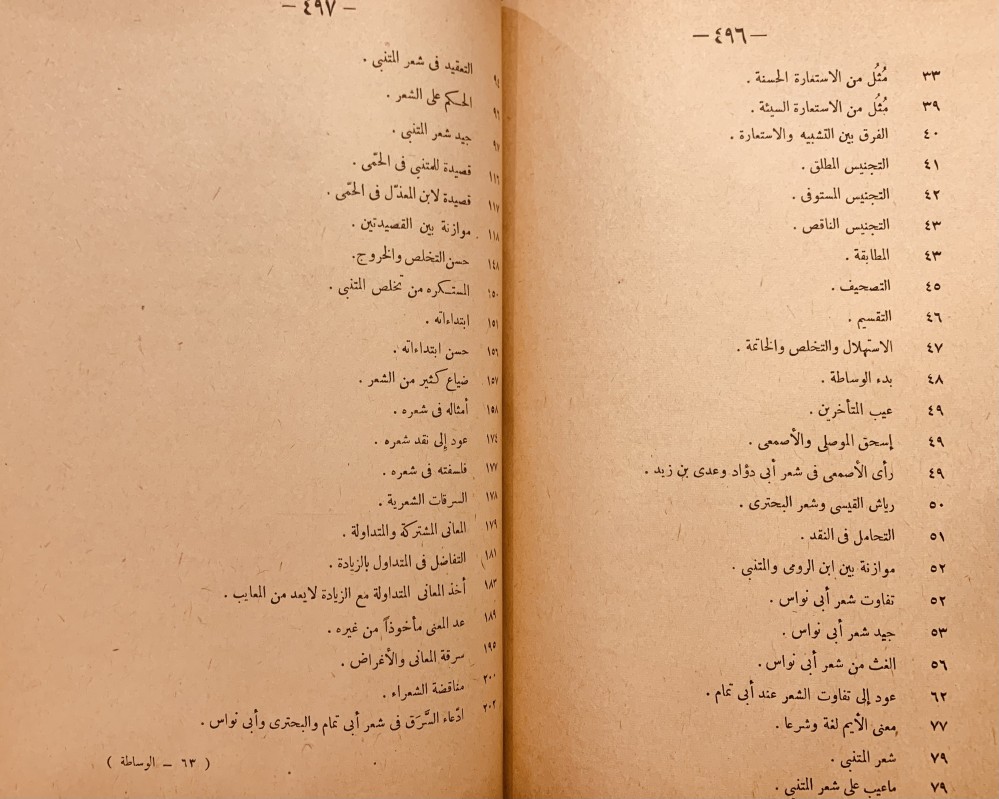 — ٤٩٦ —
٣٣ مُثُل من الاستعارة الحسنة .
٣٩ مُثُل من الاستعارة السيئة .
٤٠ الفرق بين التشبيه والاستعارة .
٤١ التجنيس المطلق .
٤٢ التجنيس المستوفى .
٤٣ التجنيس الناقص .
٤٣ المطابقة .
٤٥ التصحيف .
٤٦ التقسيم .
٤٧ الاستهلال والتخلص والخاتمة .
٤٨ بدء الوساطة .
٤٩ عيب المتأخرين .
٤٩ إسحق الموصلى والأصمعى .
٤٩ رأى الأصمعى فى شعر أبى دؤاد وعدى بن زيد .
٥٠ رياش القيسى وشعر البحترى .
٥١ التحامل فى النقد .
٥٢ موازنة بين ابن الرومى والمتنبى .
٥٢ تفاوت شعر أبى نواس .
٥٣ جيد شعر أبى نواس .
٥٦ الغث من شعر أبى نواس .
٦٢ عود إلى تفاوت الشعر عند أبى تمام .
٧٧ معنى الأيم لغة وشرعا .
٧٩ شعر المتنبى .
٧٩ ماعيب على شعر المتنبى .
— ٤٩٧ —
٩٤ التعقيد فى شعر المتنبى .
٩٦ الحكم على الشعر .
٩٧ جيد شعر المتنبى .
١١٦ قصيدة للمتنبى فى الحمّى .
١١٧ قصيدة لابن المعذّل فى الحمّى .
١١٨ موازنة بين القصيدتين .
١٤٨ حسن التخلص والخروج .
١٥٠ المستكره من تخلص المتنبى .
١٥١ ابتداءاته .
١٥٦ حسن ابتداءاته .
١٥٧ ضياع كثير من الشعر .
١٥٨ أمثاله فى شعره .
١٧٤ عود إلى نقد شعره .
١٧٧ فلسفته فى شعره .
١٧٨ السرقات الشعرية .
١٧٩ المعانى المشتركة والمتداولة .
١٨١ التفاضل فى المتداول بالزيادة .
١٨٣ أخذ المعانى المتداولة مع الزيادة لايعد من المعايب .
١٨٩ عد المعنى مأخوذاً من غيره .
١٩٥ سرقة المعانى والأغراض .
٢٠٠ مناقضة الشعراء .
٢٠٢ ادّعاء السَّرَق فى شعر أبى تمام والبحترى وأبى نواس .
( ٦٣ — الوساطة )